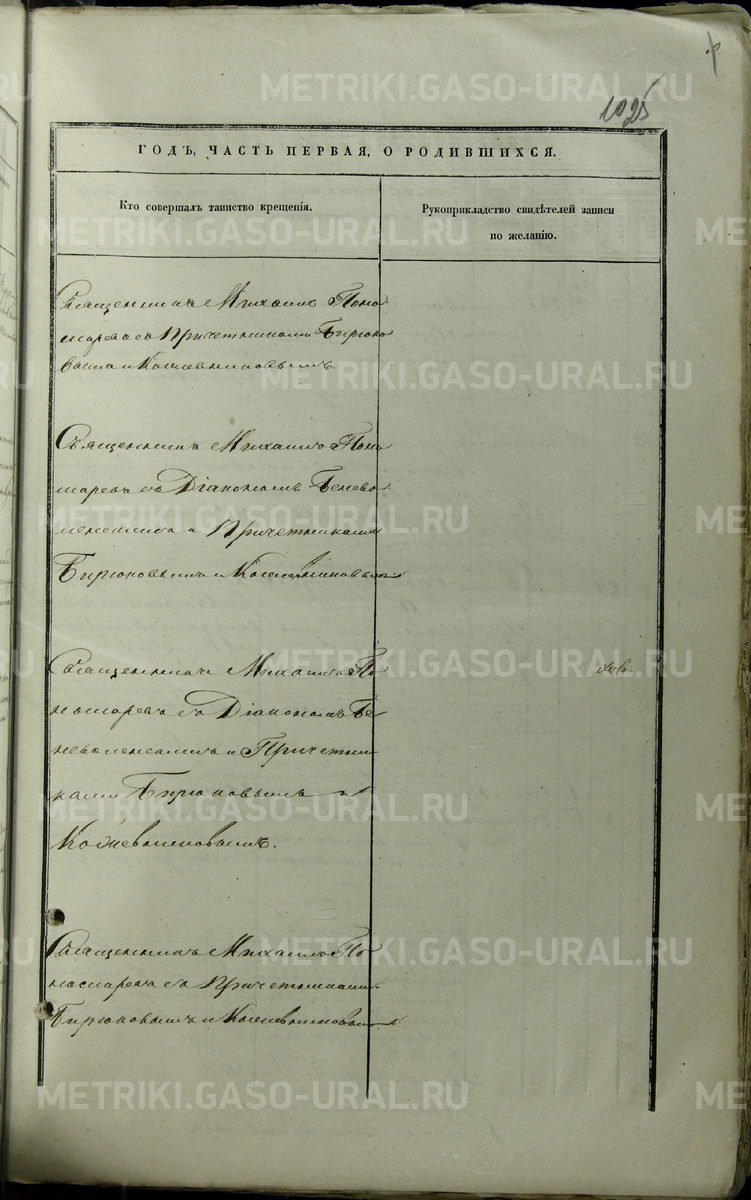 METRIKI.GASO-URAL.RU
1025
ГОДЪ, ЧАСТЬ ПЕРВАЯ, О РОДИВШИХСЯ.
Кто совершалъ таинство крещенія.
Рукоприкладство свидѣтелей записи
по желанію.
Священникъ Михаилъ Поно
маревъ съ Причетниками Бирюко
вымъ и Кожевниковымъ.
Священникъ Михаилъ Поно
маревъ съ Діакономъ Бенево
ленскимъ и Причетниками
Бирюковымъ и Кожевниковымъ
Священникъ Михаилъ По
номаревъ съ Діакономъ Бе
неволенскимъ и Причетни
ками Бирюковымъ и
Кожевниковымъ.
Священникъ Михаилъ По
номаревъ съ Причетниками
Бирюковымъ и Кожевниковымъ